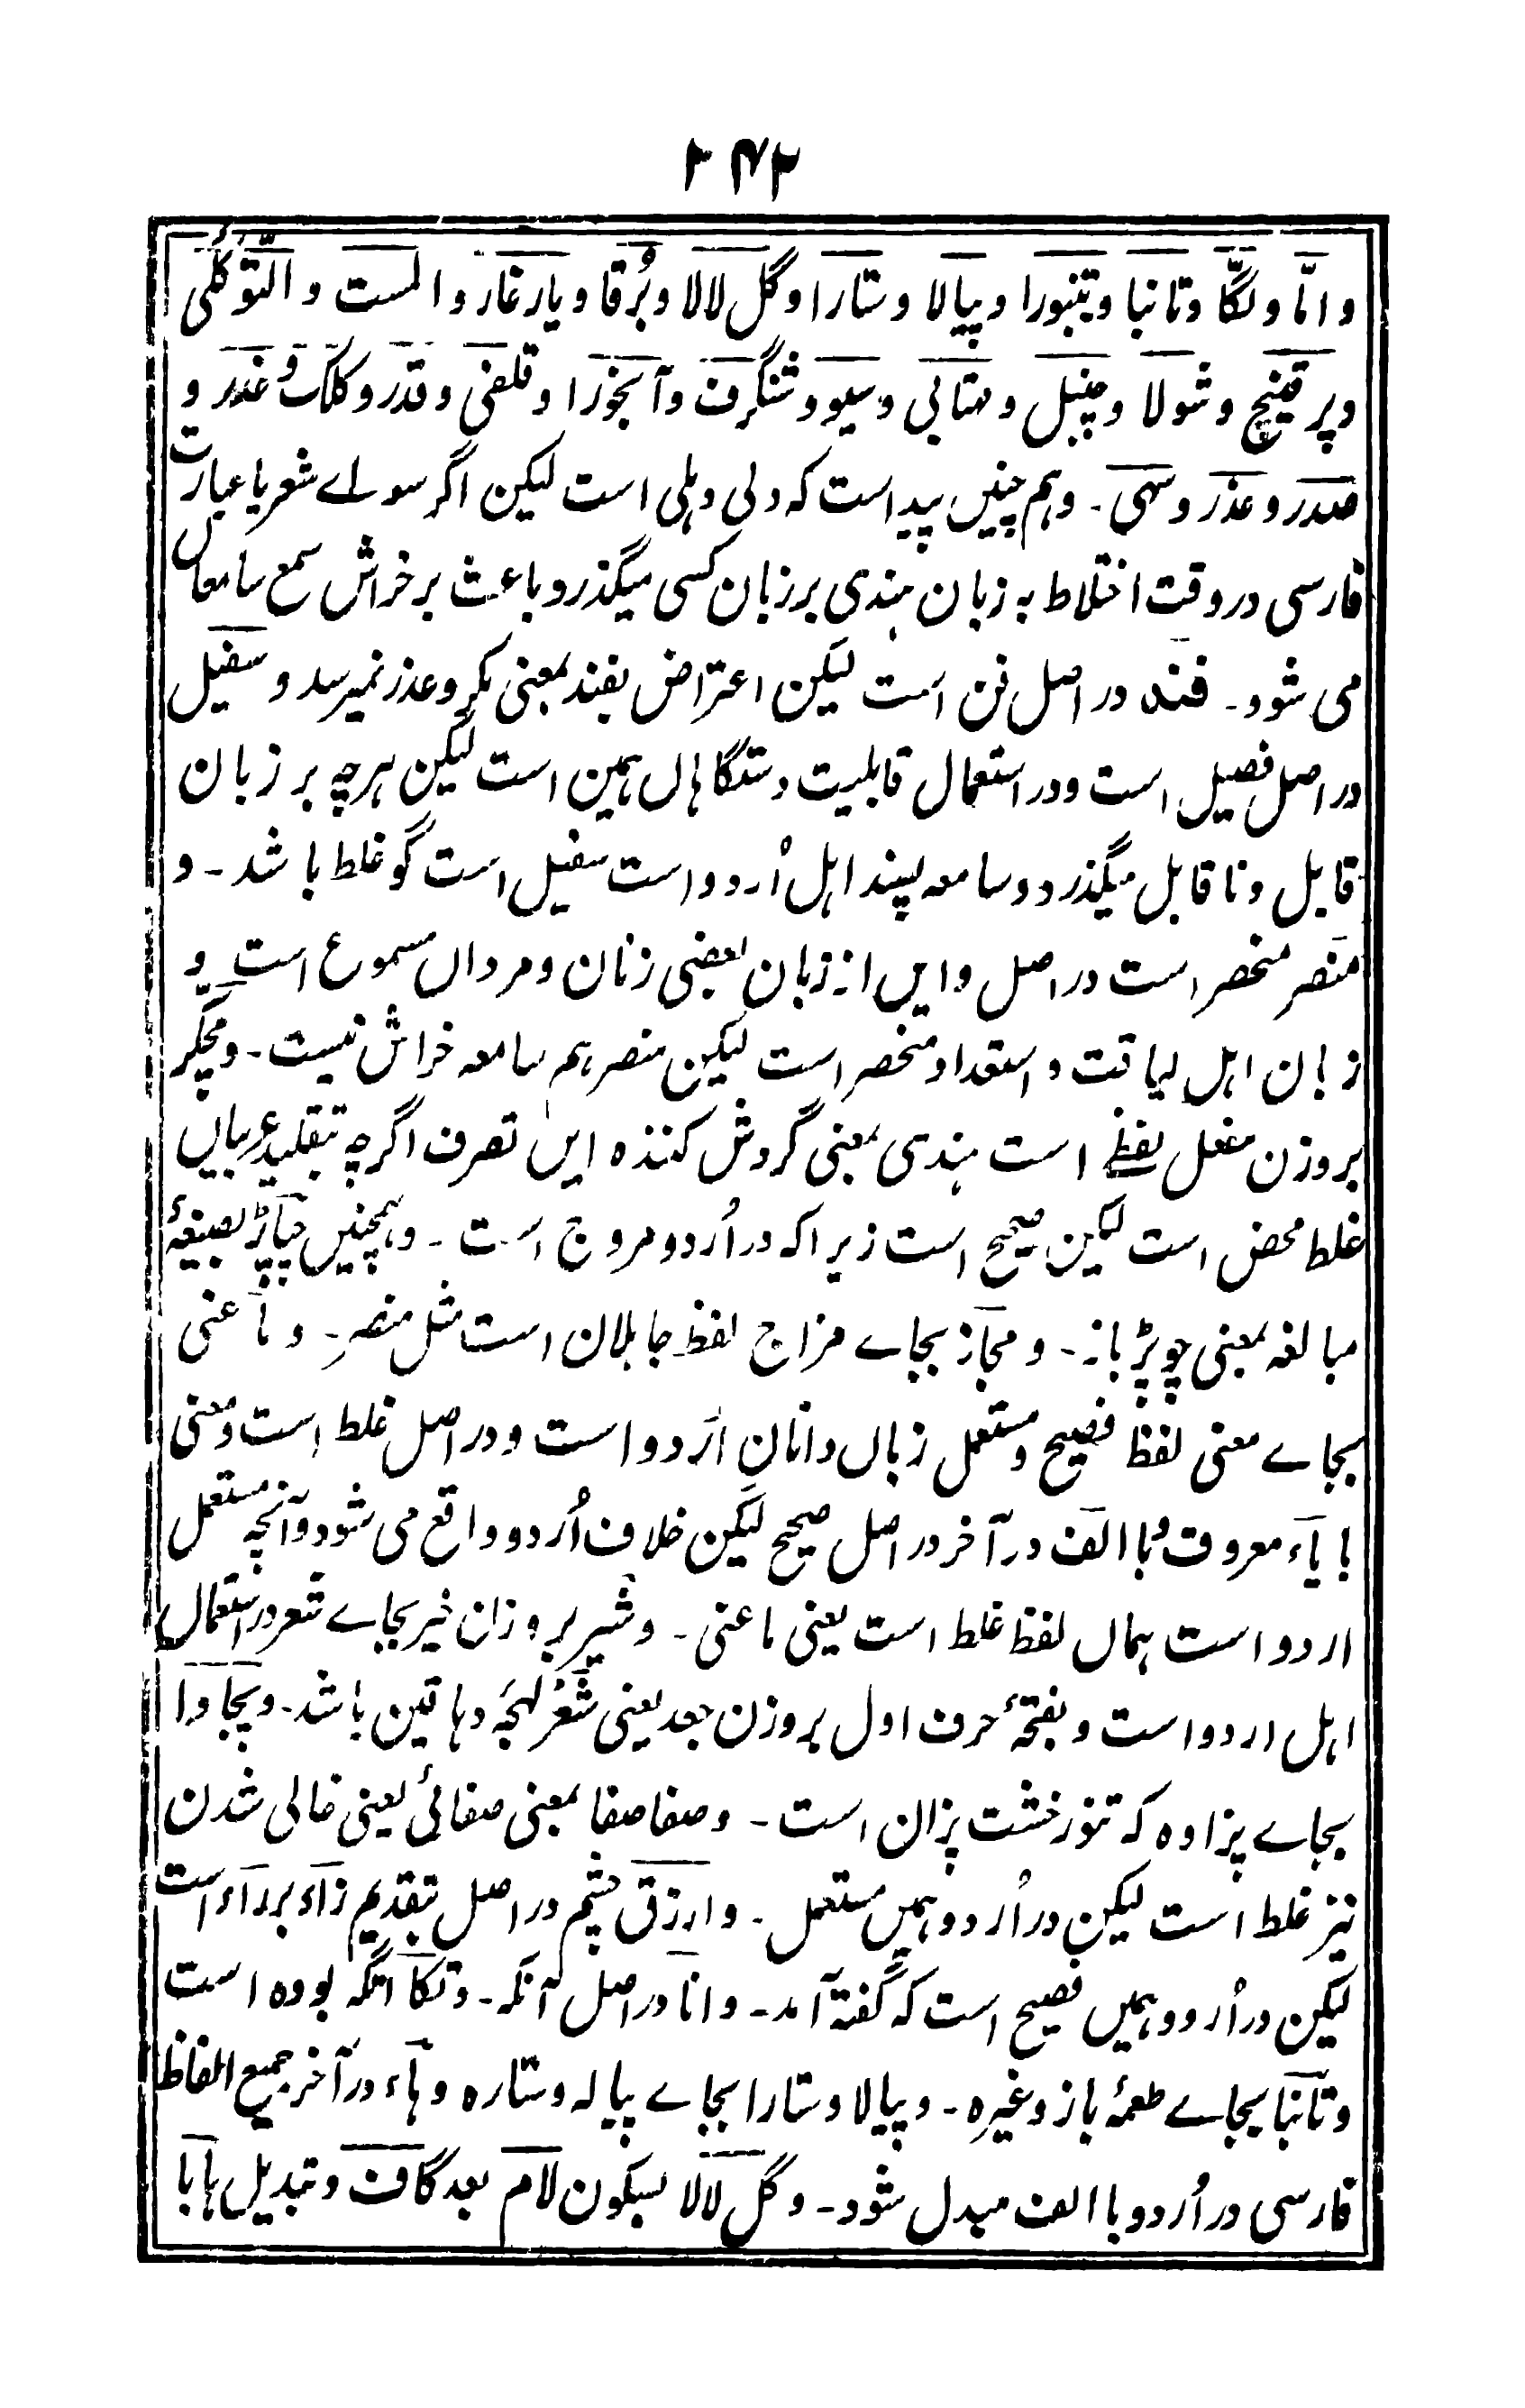 ۲۴۲
و انّا و لگّا و تانبا و تنبورا و پیالا و ستارا و گل لالا و بُرقا و یار غار و المست و التّوکُلّی
و پر قینچ و شولا و چنبل و مہتابی و سیو و شنگرف و آبخورا و قلفی و قدر و کلاک و غدر و
صدر و عذر و سہی ۔ و ہم چنیں پیداست کہ دلی دہلی است لیکن اگر سواے شعر یا عبارت
فارسی در وقت اختلاط بہ زبان ہندی بر زبان کسی میگذرد باعث بر خراش سمع سامعاں
می شود ۔ فند در اصل فن است لیکن اعتراض بفند بمعنی مکر و عذر نمیرسد و سفیل
در اصل فصیل است و در استعمال قابلیت دستگاہاں ہمین است لیکن ہرچہ بر زبان
قابل و نا قابل میگذرد و سامعہ پسند اہل اُردو است سفیل است گو غلط باشد ۔ و
منصر منحصر است در اصل و ایں از زبان بعضی زنان و مرداں مسموع است و
زبان اہل لیاقت و استعداد منحصر است لیکن منصر ہم سامعہ خراش نیست ۔ و مچکّر
بر وزن مفعل لفظے است ہندی بمعنی گردش کنندہ ایں تصرف اگرچہ بتقلید عربیاں
غلط محض است لیکن صحیح است زیرا کہ در اُردو مروج است ۔ و ہمچنیں چپاڑ بصیغۂ
مبالغہ بمعنی چوپڑ باز ۔ و مجاز بجاے مزاج لفظ جاہلان است مثل منصر ۔ و ماعنی
بجاے معنی لفظ فصیح و مستعمل زباں دانانِ اُردو است و در اصل غلط است و معنی
با یاء معروف و با الف در آخر در اصل صحیح لیکن خلاف اُردو واقع می شود و آنچہ مستعمل
اردو است ہماں لفظ غلط است یعنی ماعنی ۔ و شیر بر وزان خیر بجاے شعر در استعمال
اہل اردو است و بفتحۂ حرف اول بر وزن جعد یعنی شَعْر لہجۂ دہاقین باشد ۔ و پجاوا
بجاے پزاوہ کہ تنور خشت پزان است ۔ و صفا صفا بمعنی صفائی یعنی خالی شدن
نیز غلط است لیکن در اُردو ہمیں مستعمل ۔ و ارزق چشم در اصل بتقدیم زاء بر راء است
لیکن در اُردو ہمیں فصیح است کہ گفتہ آمد ۔ و انا در اصل آنگہ ۔ و تکا اتگہ بودہ است
و تانبا بجاے طعمۂ باز وغیرہ ۔ و پیالا و ستارا بجاے پیالہ و ستارہ و ہاء در آخر جمیع الفاظ
فارسی در اُردو با الف مبدل شود ۔ و گل لالا بسکون لام بعد گاف و تبدیل ہا با